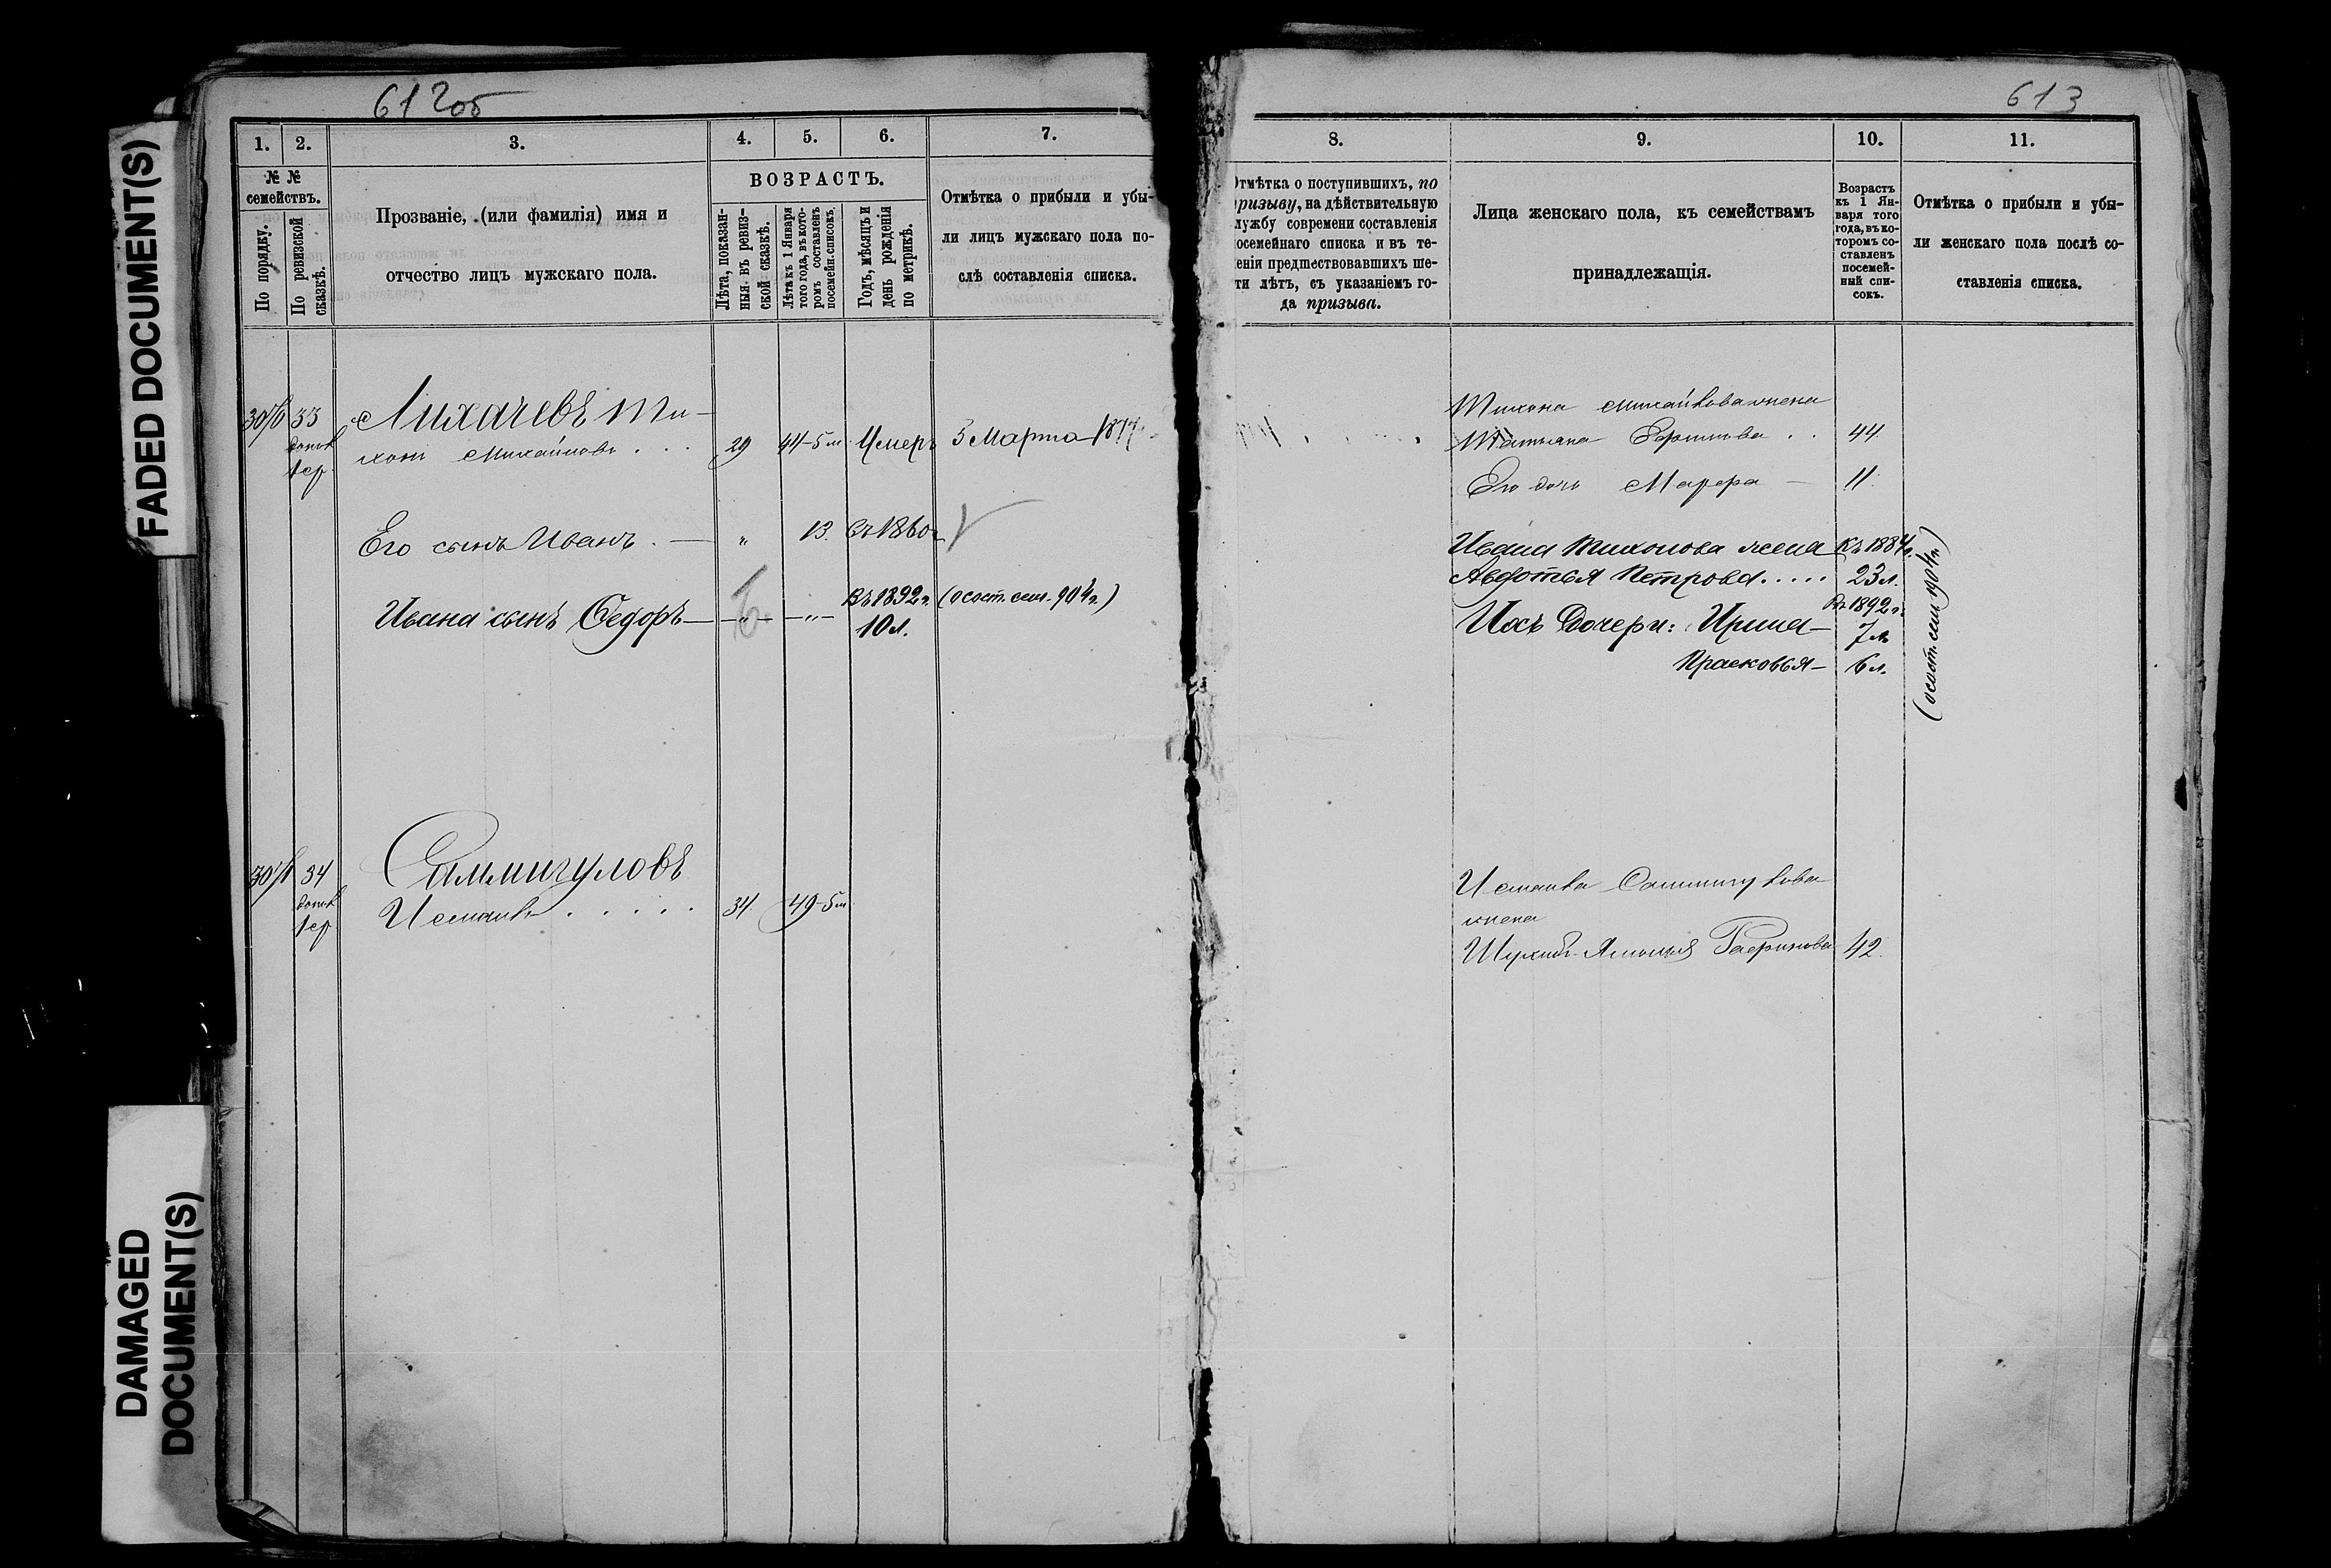 FADED DOCUMENT(S)
DAMAGED
DOCUMENT(S)
612об
1. 2. 3. 4. 5. 6. 7.
№ №
семействъ.
По порядку.
По ревизской
сказкѣ.
Прозваніе, (или фамилія) имя и
отчество лицъ мужскаго пола.
ВОЗРАСТЪ.
Лѣта, показан-
ныя въ ревиз-
ской сказкѣ.
Лѣта къ 1 Января
того года, въ кото-
ромъ составленъ
посемейн. списокъ.
Годъ, мѣсяцъ и
день рожденія
по метрикѣ.
Отмѣтка о прибыли и убы-
ли лицъ мужскаго пола по-
слѣ составленія списка.
33 Лихачевъ Ти-
хонъ Михайловъ . . . 29 44-5 м. Умеръ 5 Марта 1877
Его сынъ Иванъ . — " 13. Въ 1860 г.
Ивана сынъ Федоръ — " — " — Въ 1892 г. (о сост. сем. 904 г.)
10 л.
34 Саммигуловъ
Исмаилъ . . . . . 34. 49-5 м.
613
8. 9. 10. 11.
Отмѣтка о поступившихъ, по
призыву, на дѣйствительную
лужбу современи составленія
осемейнаго списка и въ те-
еніи предшествовавшихъ ше-
ти лѣтъ, съ указаніемъ го-
да призыва.
Лица женскаго пола, къ семействамъ
принадлежащія.
Возрастъ
къ 1 Ян-
варя того
года, въ ко-
торомъ со-
ставленъ
посемей-
ный спи-
сокъ.
Отмѣтка о прибыли и убы-
ли женскаго пола послѣ со-
ставленія списка.
Тихона Михайлова жена
Татьяна . . 44.
Его дочь — 11.
Ивана Тихонова жена Къ 1884 г.
Авдотья Петрова . . . . . 23 л.
Въ 1892 г.
Ихъ Дочери: Ирина — 7 л.
Прасковья — 6 л.
(о сост. сем. 904 г.)
Исмаила Саммигулова
жена
42.